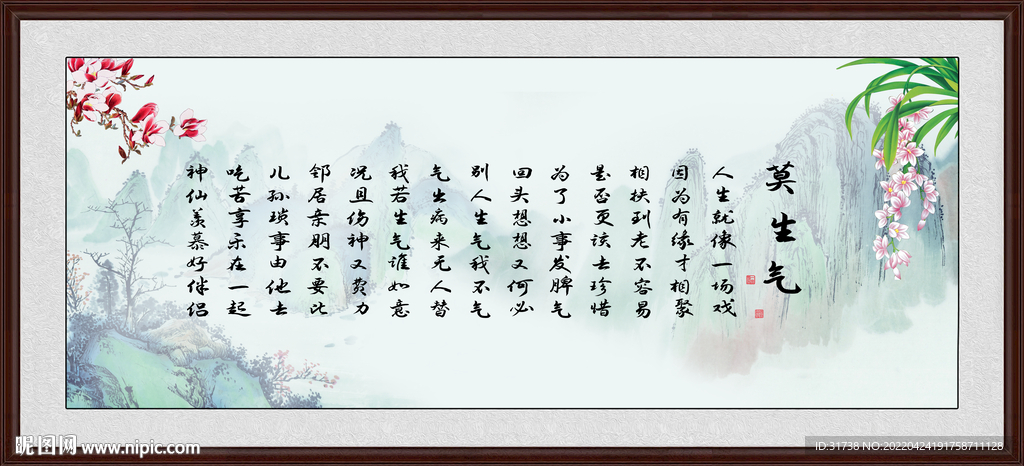 莫生气
人生就像一场戏
因为有缘才相聚
相扶到老不容易
是否更该去珍惜
为了小事发脾气
回头想想又何必
别人生气我不气
气出病来无人替
我若生气谁如意
况且伤神又费力
邻居亲朋不要比
儿孙琐事由他去
吃苦享乐在一起
神仙羡慕好伴侣
昵图网 www.nipic.com
ID:31738 NO:20220424191758711128